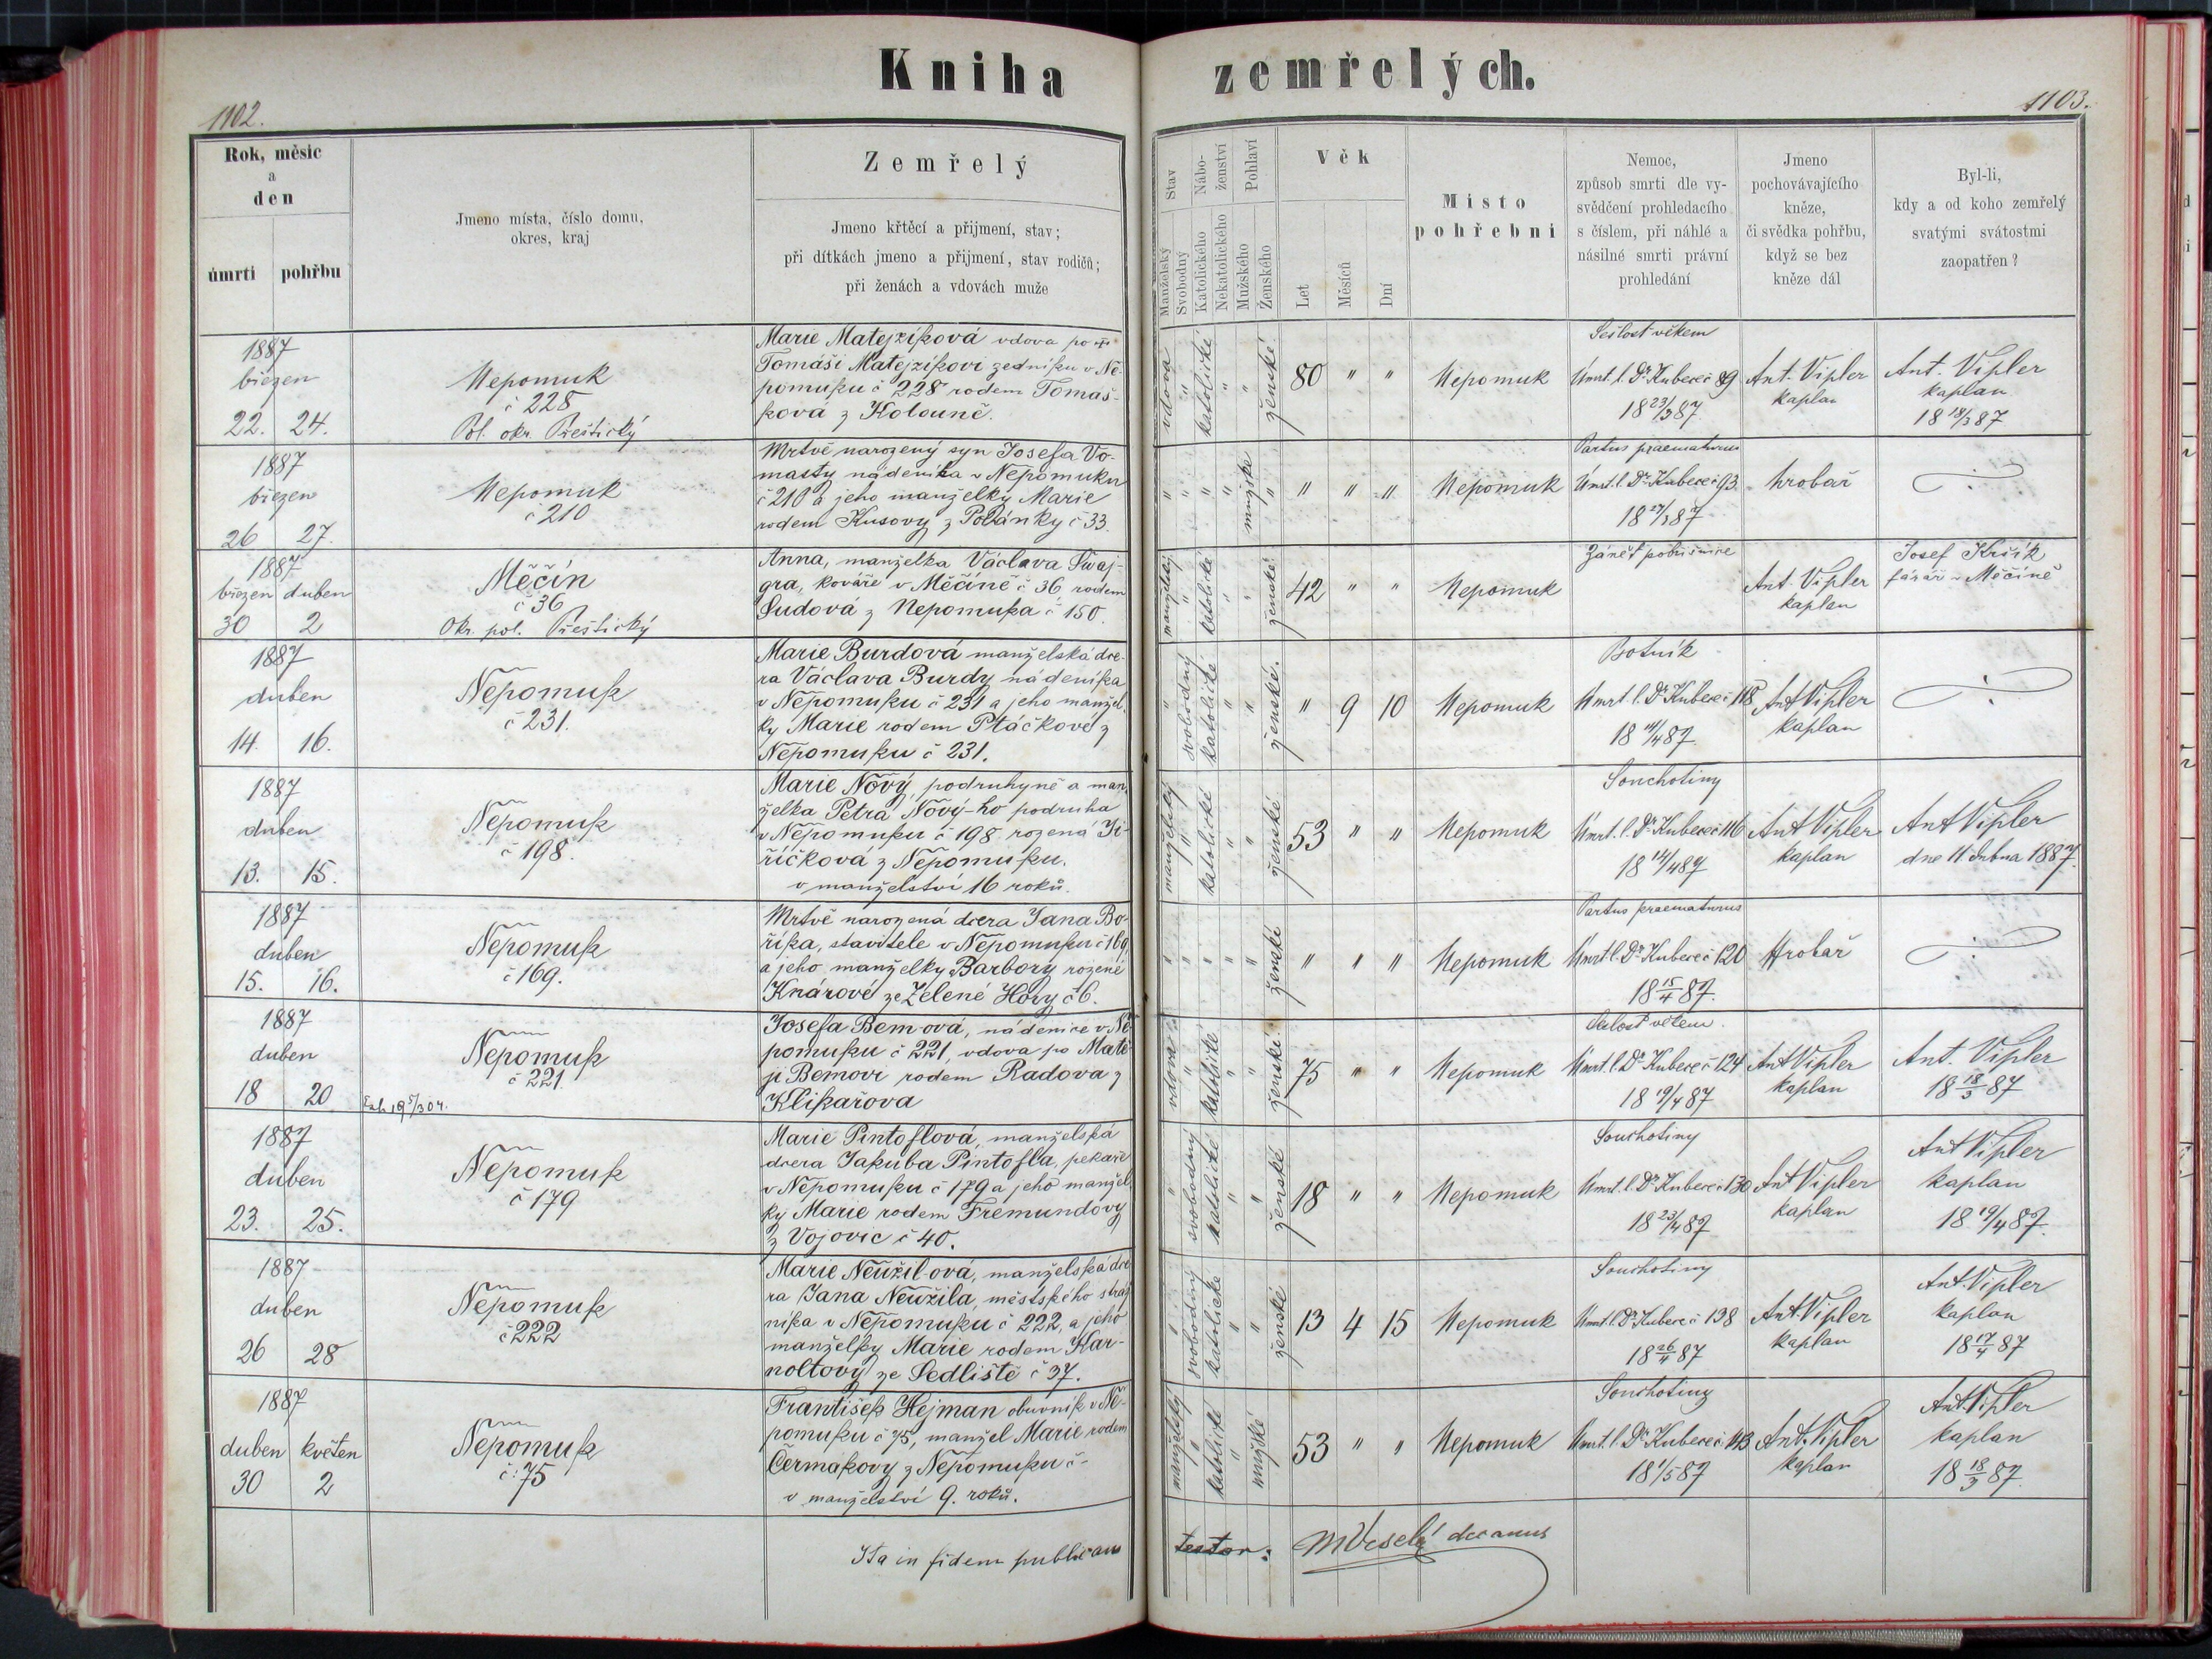 Kniha zemřelých.
1102.
1103.
Rok, měsíc
a
den
úmrtí
pohřbu
Jmeno místa, číslo domu,
okres, kraj
Zemřelý
Jmeno křtěcí a přijmení, stav;
při dítkách jmeno a přijmení, stav rodičů;
při ženách a vdovách muže
Stav
Manželský
Svobodný
Nábo-
ženství
Katolického
Nekatolického
Pohlaví
Mužského
Ženského
Věk
Let
Měsíců
Dní
Místo
pohřební
Nemoc,
způsob smrti dle vy-
svědčení prohledacího
s číslem, při náhlé a
násilné smrti právní
prohledání
Jmeno
pochovávajícího
kněze,
či svědka pohřbu,
když se bez
kněze dál
Byl-li,
kdy a od koho zemřelý
svatými svátostmi
zaopatřen?
1887
březen
22. 24.
Nepomuk
č 228
Pol. okr. Přeštický
Marie Matejzíková vdova po
Tomáši Matejzíkovi zedníku v Ne-
pomuku č 228 rodem Tomáš-
kova z Kotouně.
vdova
katolické
ženské
80 " "
Nepomuk
Sešlost věkem
Úmrt. l. Dr Kubece č 89
18 23/3 87.
Ant. Vipler
kaplan
Ant. Vipler
kaplan
18 18/3 87
1887
březen
26 27.
Nepomuk
č 210
Mrtvě narozený syn Josefa Vo-
masty nádeníka v Nepomuku
č 210 a jeho manželky Marie
rodem Kusovy z Polánky č 33.
mužské
" " "
Nepomuk
Partus praematurus
Úmrt. l. Dr Kubece č 93.
18 27/3 87
hrobař
1887
březen duben
30 2
Měčín
č 36
Okr. pol. Přeštický
Anna, manželka Václava Švaj-
gra, kováře v Měčíně č 36 rodem
Sudová z Nepomuka č 150.
manželský
katolické
ženské
42 " "
Nepomuk
Zánět pobřišnice
Ant. Vipler
kaplan
Josef Kršík
farář v Měčíně
1887
duben
14. 16.
Nepomuk
č 231.
Marie Burdová manželská dce-
ra Václava Burdy nádeníka
v Nepomuku č 231 a jeho manžel-
ky Marie rodem Ptáčkové z
Nepomuku č 231.
svobodný
katolické
ženské.
" 9 10
Nepomuk
Botník
Úmrt. l. Dr Kubece č 118
18 14/4 87.
Ant Vipler
kaplan
1887
duben
13. 15.
Nepomuk
č 198.
Marie Nový, podruhyně a man-
želka Petra Nový-ho podruha
v Nepomuku č 198 rozená Ji-
říčková z Nepomuku.
v manželství 16 roků.
manželský
katolické
ženské
53 " "
Nepomuk
Souchotiny
Úmrt. l. Dr Kubece č 116
18 14/4 87
Ant Vipler
kaplan
Ant Vipler
dne 11 dubna 1887.
1887
duben
15. 16.
Nepomuk
č 169.
Mrtvě narozená dcera Jana Bo-
říka, stavitele v Nepomuku č 169
a jeho manželky Barbory rozené
Knárové ze Zelené Hory č 6.
ženské
" " "
Nepomuk
Partus praematurus
Úmrt. l. Dr Kubece č 120
18 15/4 87.
Hrobař
1887
duben
18 20
Nepomuk
č 221.
19 5/3 04.
Josefa Bem-ová, nádenice v Ne-
pomuku č 221, vdova po Matě-
ji Bemovi rodem Radova z
Klikařova
vdova
katolické
ženské.
75 " "
Nepomuk
Sešlost věkem.
Úmrt. l. Dr Kubece č 124
18 19/4 87
Ant Vipler
kaplan
Ant. Vipler
18 18/3 87
1887
duben
23. 25.
Nepomuk
č 179
Marie Pintoflová, manželská
dcera Jakuba Pintofla, pekaře
v Nepomuku č 179 a jeho manžel-
ky Marie rodem Fremundovy
z Vojovic č 40.
svobodný
katolické
ženské
18 " "
Nepomuk
Souchotiny
Úmrt. l. Dr Kubece č 130
18 23/4 87
Ant Vipler
kaplan
Ant Vipler
kaplan
18 19/4 87.
1887
duben
26 28
Nepomuk
č 222
Marie Neužil-ová, manželská dce
ra Jana Neužila, městského stráž
níka v Nepomuku č 222, a jeho
manželky Marie rodem Kar-
noltovy ze Sedliště č 37.
svobodný
katolické
ženské
13 4 15
Nepomuk
Souchotiny
Úmrt. l. Dr Kubece č 138
18 26/4 87
Ant Vipler
kaplan
Ant. Vipler
kaplan
18 17/4 87
1887
duben květen
30 2
Nepomuk
č: 75
František Hejman obuvník v Ne-
pomuku č 75, manžel Marie rodem
Čermákovy z Nepomuku č -
v manželství 9. roků.
manželský
katolické
mužské
53 " "
Nepomuk
Souchotiny
Úmrt. l. Dr Kubece č 143
18 1/5 87
Ant. Vipler
kaplan
Ant. Vipler
kaplan
18 18/3 87.
Ita in fidem publicam
testor: MVeselý decanus